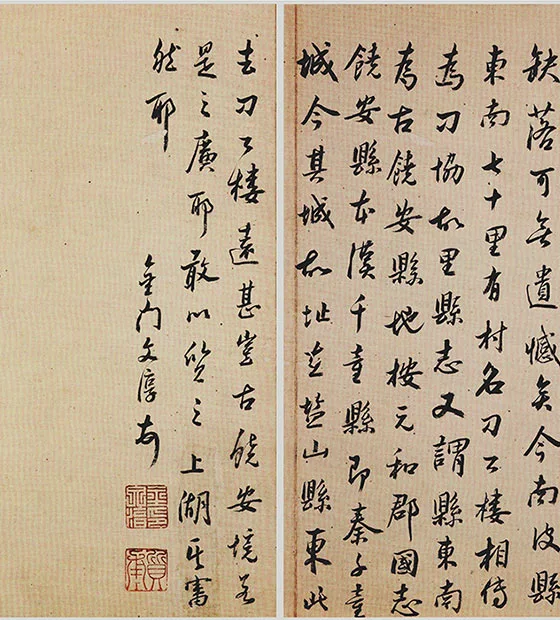 缺落可無遺憾矣今南皮縣
東南七十里有村名刁公樓相傳
為刁協故里縣志又謂縣東南
為古饒安縣地按元和郡國志
饒安縣本漢千童縣即秦千童
城今其城故址在鹽山縣東此
去刁公樓遠甚豈古饒安境若
是之廣耶敢以質之上湖書
然耶
門文淳
質甫